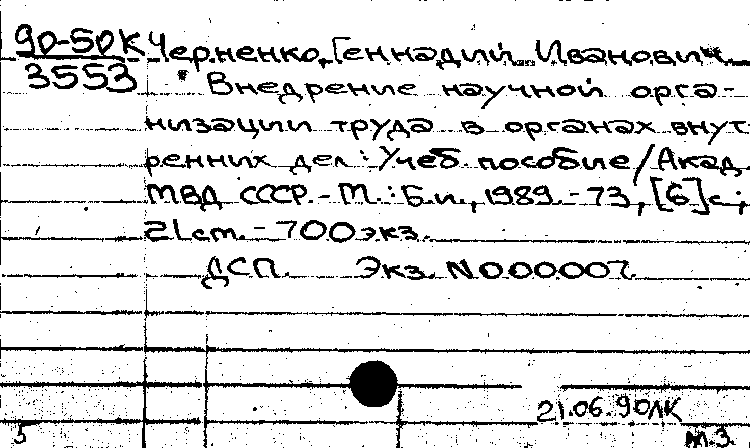 90-50К Черненко, Геннадий Иванович.
3553
Внедрение научной орга-
низации труда в органах внут
ренних дел : Учеб. пособие / Акад.
МВД СССР. - М. : Б.и., 1989. - 73, [6] с.;
21 cm. - 700 экз.
ДСП. Экз. N000007.
21.06.90ЛК
5
М.З.